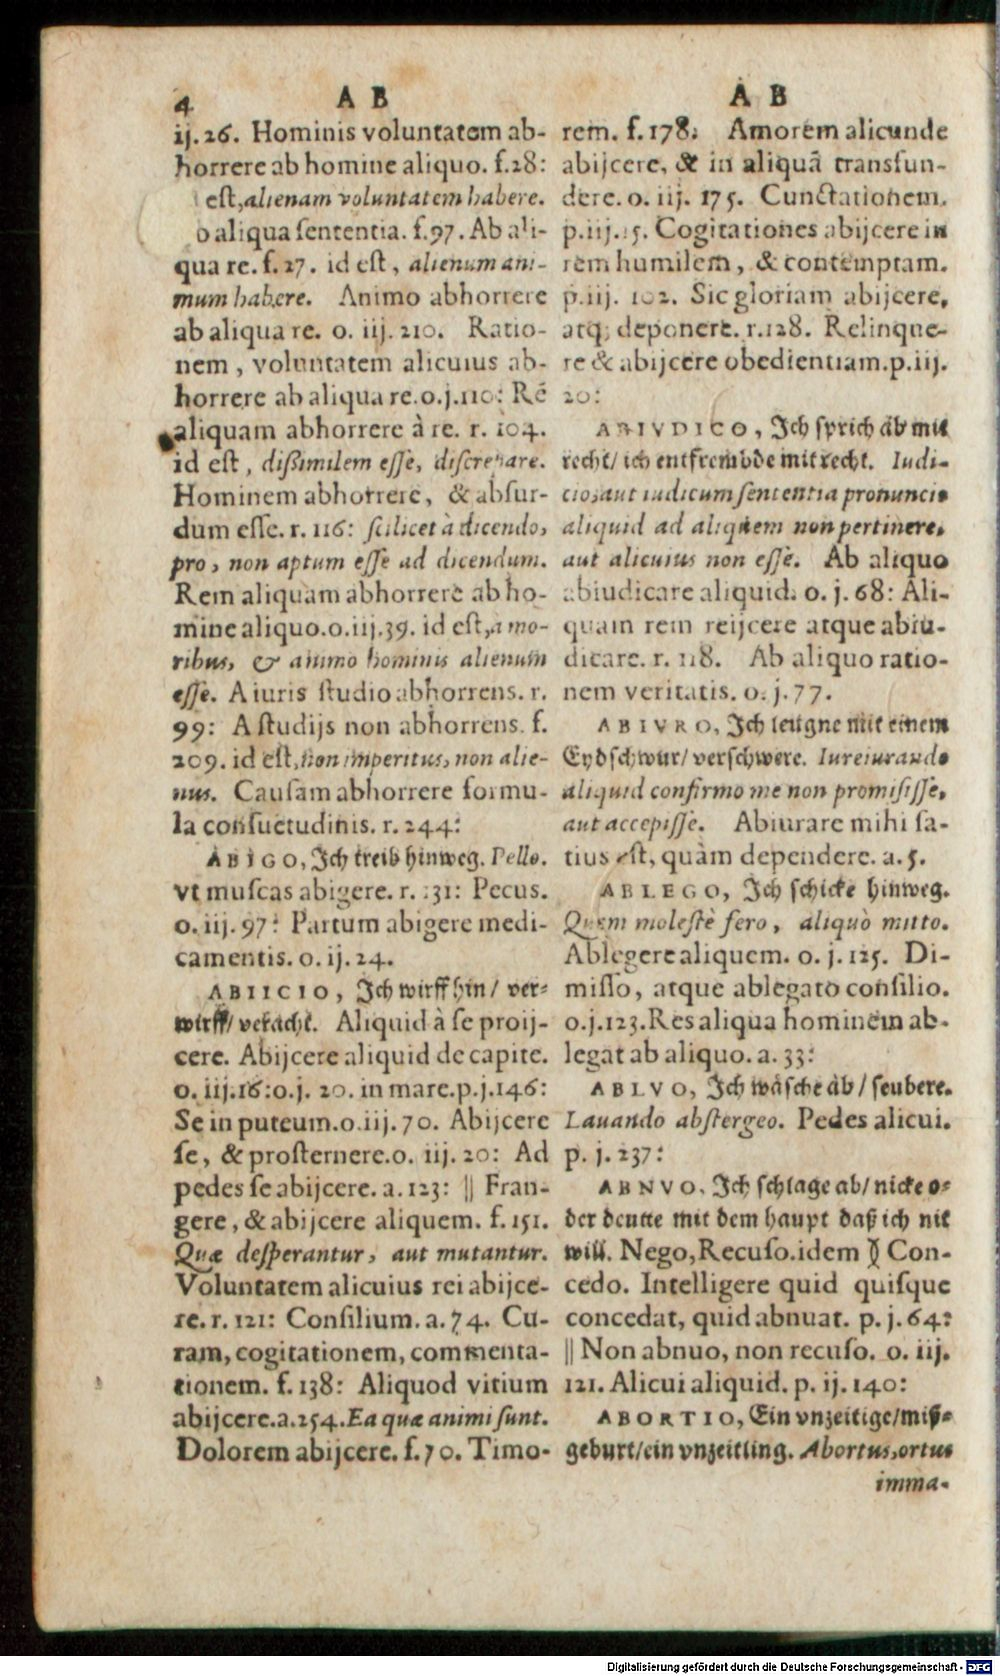 4 A B
ij. 26. Hominis voluntatem ab-
horrere ab homine aliquo. ſ.28:
eſt, alienam voluntatem habere.
aliqua ſententia. ſ.97. Ab ali-
qua re. ſ. 27. id eſt, alienum ani-
mum habere. Animo abhorrere
ab aliqua re. o. iij. 210. Ratio-
nem, voluntatem alicuius ab-
horrere ab aliqua re.o.j.110: Rē
aliquam abhorrere à re. r. 104.
id eſt, dißimilem eſſe, diſcrepare.
Hominem abhorrere, & abſur-
dum eſſe. r. 116: ſcilicet à dicendo,
pro, non aptum eſſe ad dicendum.
Rem aliquam abhorrere ab ho-
mine aliquo.o.iij.39. id eſt, à mo-
ribus, & animo hominis alienum
eſſe. A iuris ſtudio abhorrens. r.
99: A ſtudijs non abhorrens. ſ.
209. id eſt, non imperitus, non alie-
nus. Cauſam abhorrere formu-
la conſuetudinis. r. 244:
ABIGO, Ich treib hinweg. Pello.
vt muſcas abigere. r. 131: Pecus.
o. iij. 97: Partum abigere medi-
camentis. o. ij. 24.
ABIICIO, Ich wirff hin/ ver-
wirff/ veracht. Aliquid à ſe proij-
cere. Abijcere aliquid de capite.
o. iij.16:o.j. 20. in mare.p.j.146:
Se in puteum.o.iij.70. Abijcere
ſe, & proſternere.o. iij. 20: Ad
pedes ſe abijcere. a. 123: || Fran-
gere, & abijcere aliquem. ſ. 151.
Quæ deſperantur, aut mutantur.
Voluntatem alicuius rei abijce-
re. r. 121: Conſilium. a. 74. Cu-
ram, cogitationem, commenta-
tionem. ſ. 138: Aliquod vitium
abijcere.a.254. Ea quæ animi ſunt.
Dolorem abijcere. ſ.70. Timo-
A B
rem. ſ. 178: Amorem alicunde
abijcere, & in aliquā transfun-
dere. o. iij. 175. Cunctationem.
p.iij.15. Cogitationes abijcere in
rem humilem, & contemptam.
p.iij. 102. Sic gloriam abijcere,
atq; deponere. r.128. Relinque-
re & abijcere obedientiam.p.iij.
20:
ABIVDICO, Ich ſprich ab mit
recht/ ich entfrembde mit recht. Iudi-
cio, aut iudicum ſententia pronuncio
aliquid ad aliquem non pertinere,
aut alicuius non eſſe. Ab aliquo
abiudicare aliquid. o. j. 68: Ali-
quam rem reijcere atque abiu-
dicare. r. 118. Ab aliquo ratio-
nem veritatis. o. j. 77.
ABIVRO, Ich leugne mit einem
Eydſchwur/ verſchwere. Iureiurando
aliquid confirmo me non promiſiſſe,
aut accepiſſe. Abiurare mihi ſa-
tius eſt, quàm dependere. a. 5.
ABLEGO, Ich ſchicke hinweg.
Quem moleſtè fero, aliquò mitto.
Ablegere aliquem. o. j. 125. Di-
miſſo, atque ablegato conſilio.
o.j.123. Res aliqua hominem ab-
legat ab aliquo. a. 33:
ABLVO, Ich wäſche ab/ ſeubere.
Lauando abſtergeo. Pedes alicui.
p. j. 237:
ABNVO, Ich ſchlage ab/ nicke o-
der deutte mit dem haupt daß ich nit
will. Nego, Recuſo. idem Con-
cedo. Intelligere quid quiſque
concedat, quid abnuat. p. j. 64:
|| Non abnuo, non recuſo. o. iij.
121. Alicui aliquid. p. ij. 140:
ABORTIO, Ein vnzeitige/ miß-
geburt/ ein vnzeitling. Abortus, ortus
imma-
Digitalisierung gefördert durch die Deutsche Forschungsgemeinschaft - DFG